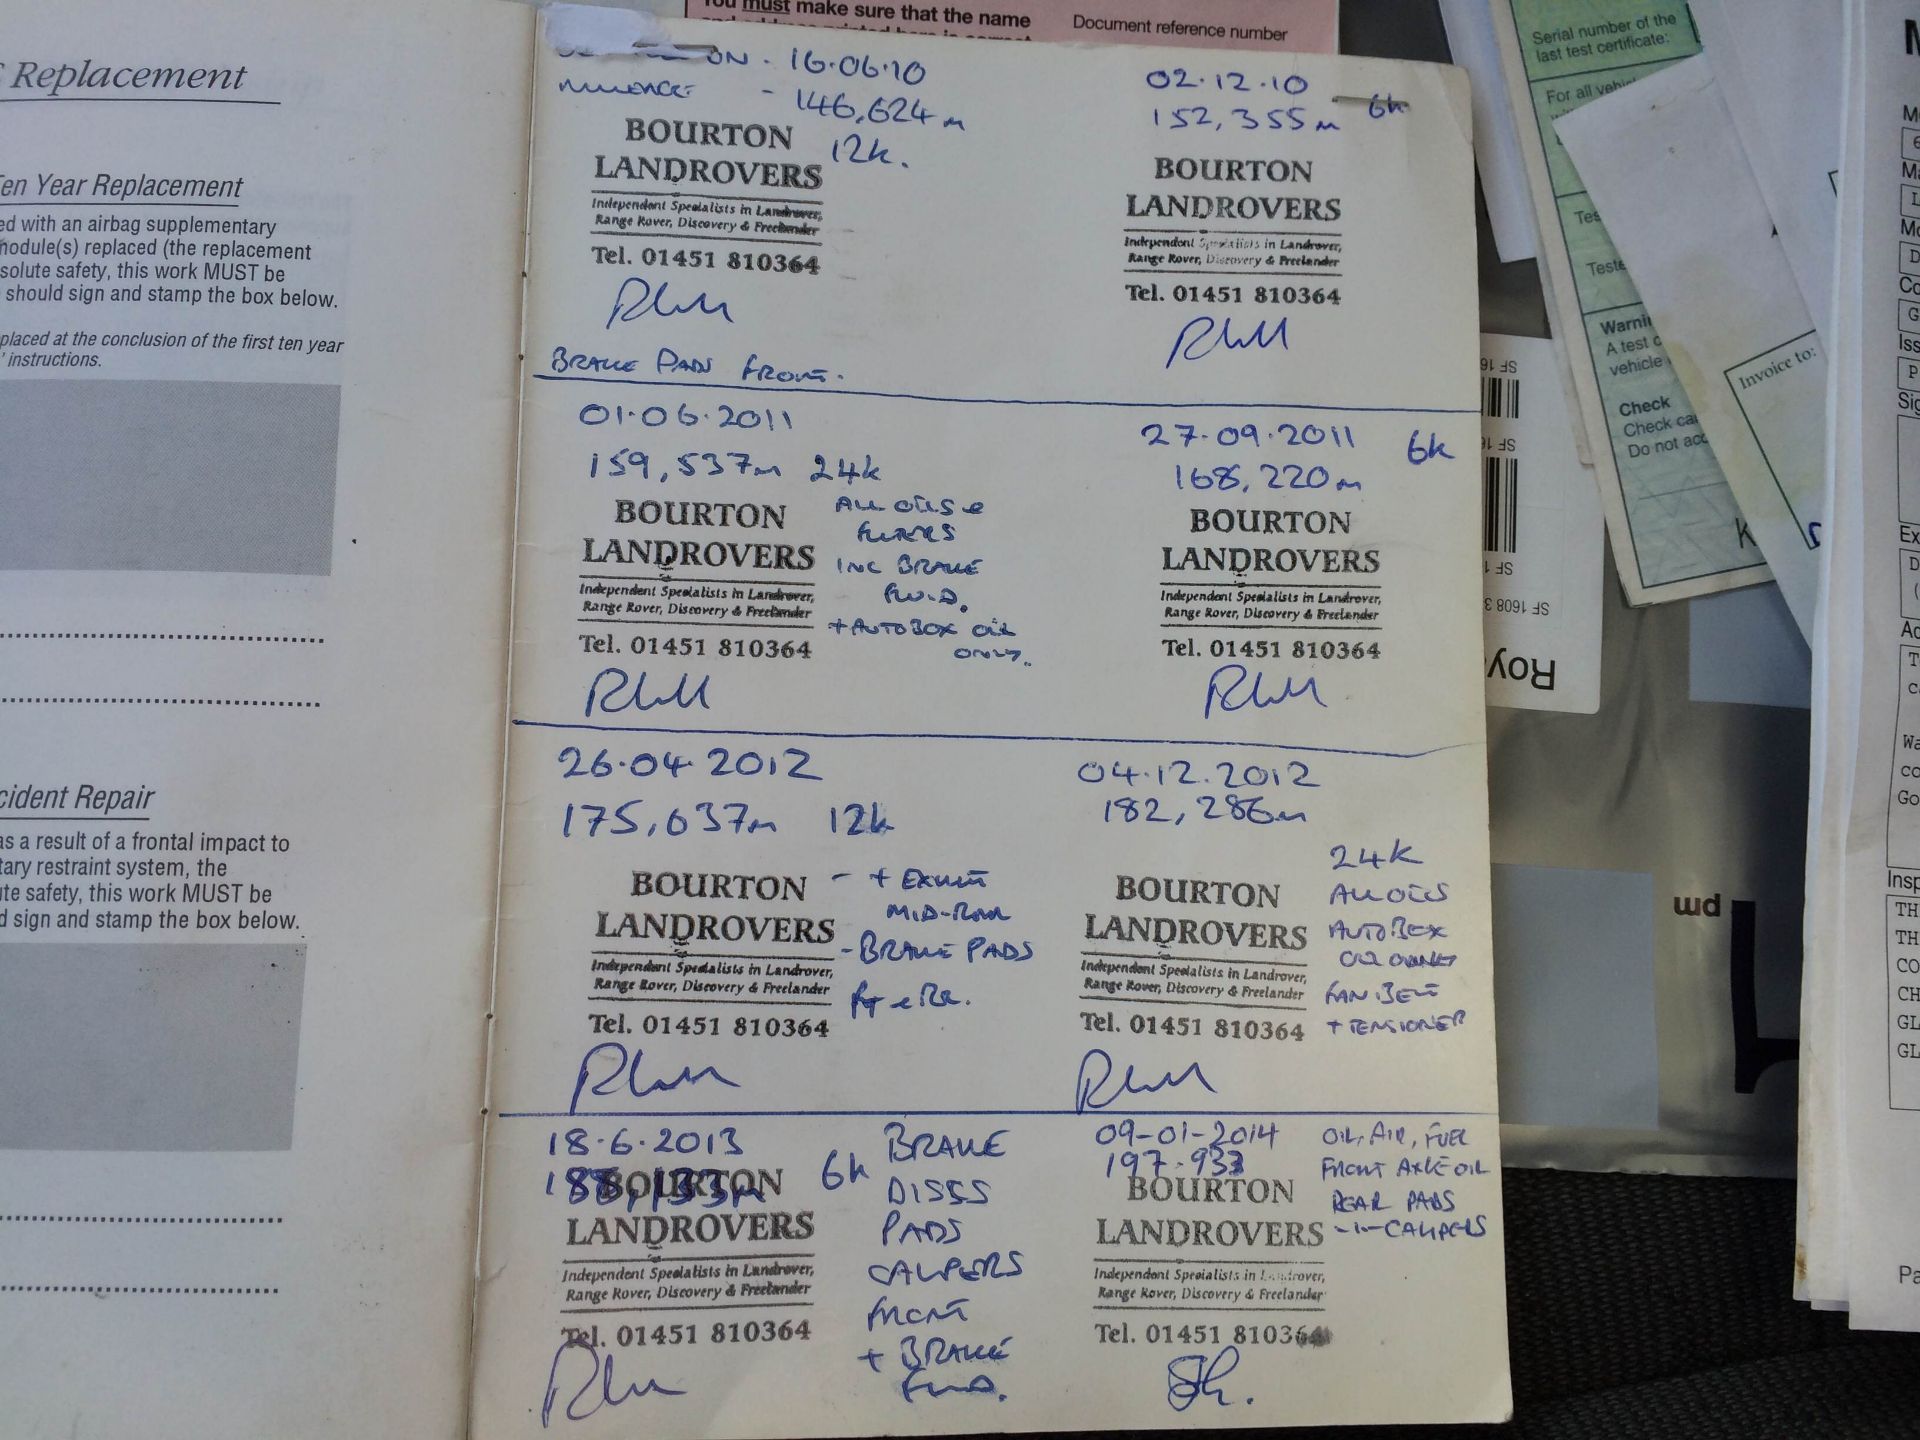 Replacement
Ten Year Replacement
ed with an airbag supplementary
module(s) replaced (the replacement
solute safety, this work MUST be
should sign and stamp the box below.
placed at the conclusion of the first ten year
' instructions.
cident Repair
as a result of a frontal impact to
tary restraint system, the
ute safety, this work MUST be
d sign and stamp the box below.
You must make sure that the name
Document reference number
16.06.10
146,624m
12k.
BOURTON
LANDROVERS
Independent Specialists in Landrover,
Range Rover, Discovery & Freelander
Tel. 01451 810364
BRAKE PADS FRONT.
02.12.10
152,355m 6k
BOURTON
LANDROVERS
Independent Specialists in Landrover,
Range Rover, Discovery & Freelander
Tel. 01451 810364
01.06.2011
159,537m 24k
BOURTON
LANDROVERS
Independent Specialists in Landrover,
Range Rover, Discovery & Freelander
Tel. 01451 810364
ALL OILS &
FILTERS
INC BRAKE
FLUID.
+ AUTOBOX OIL
ONLY.
27.09.2011 6k
168,220m
BOURTON
LANDROVERS
Independent Specialists in Landrover,
Range Rover, Discovery & Freelander
Tel. 01451 810364
26.04.2012
175,637m 12k
BOURTON
LANDROVERS
Independent Specialists in Landrover,
Range Rover, Discovery & Freelander
Tel. 01451 810364
- BRAKE PADS
04.12.2012
182,286m
24k
BOURTON
LANDROVERS
Independent Specialists in Landrover,
Range Rover, Discovery & Freelander
Tel. 01451 810364
ALL OILS
AUTOBOX
FAN BELT
+ TENSIONER
18.6.2013
188,133m 6k
BOURTON
LANDROVERS
Independent Specialists in Landrover,
Range Rover, Discovery & Freelander
Tel. 01451 810364
BRAKE
DISSS
PADS
CALIPERS
FRONT
+ BRAKE
FLUID.
09-01-2014
197.933
BOURTON
LANDROVERS
Independent Specialists in Landrover,
Range Rover, Discovery & Freelander
Tel. 01451 810364
OIL, AIR, FUEL
FRONT AXLE OIL
REAR PADS
-"- CALIPERS
Serial number of the
last test certificate:
For all
Warni
A test c
vehicle
Check
Check ca
Do not acc
Invoice to:
Roy
pm